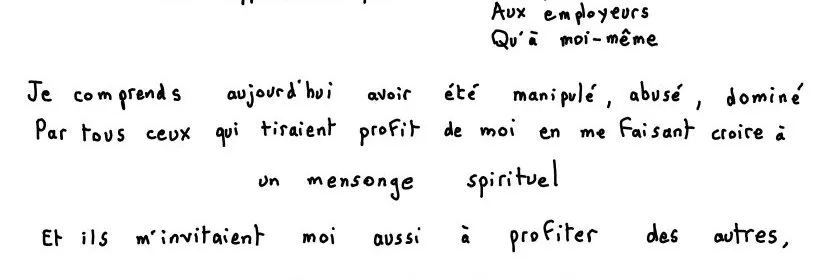 Aux employeurs
Qu'à moi-même
Je comprends aujourd'hui avoir été manipulé, abusé, dominé
Par tous ceux qui tiraient profit de moi en me faisant croire à
un mensonge spirituel
Et ils m'invitaient moi aussi à profiter des autres,